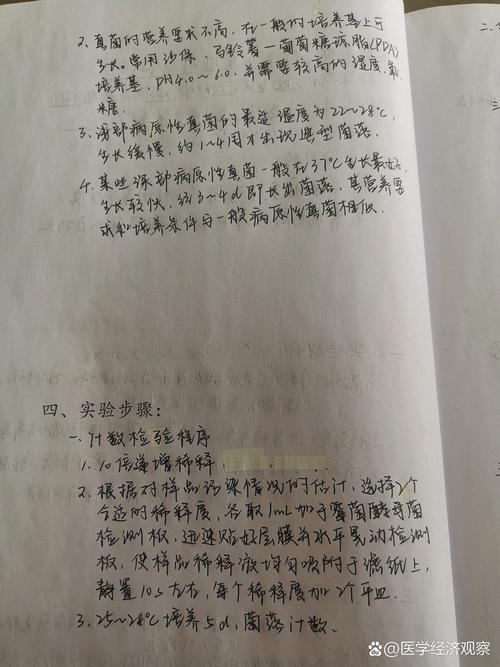 2. 真菌的营养要求不高，在一般的培养基上可
生长。常用沙保、马铃薯—葡萄糖琼脂(PDA)
培养基，pH4.0～6.0，并需要较高的湿度、氧、
糖.
3. 浅部病原性真菌的最适温度为22～28℃，
生长缓慢，约1～4周才出现典型菌落.
4. 某些深部病原性真菌一般在37℃生长最好，
生长较快，经3～4d即长出菌落，其营养要
求和培养条件与一般病原性真菌相似.
四、实验步骤：
一、计数检验程序
1. 10倍递增稀释
2. 根据对样品污染情况的估计，选择2个
合适的稀释度，各取1mL加于霉菌酵母菌
检测板，迅速贴好层膜并水平晃动检测
板，使样品稀释液均匀吸附于滤纸上，
静置10s左右，每个稀释度加2个平皿.
3. 25～28℃培养5d，菌落计数.
@医学经济观察